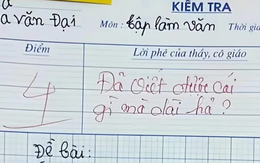 KIỂM TRA
a văn Đại Môn : tập làm văn Thời gia
Điểm Lời phê của thầy, cô giáo
4
Đã viết được cái
gì mà dài hả ?
Đề bài: